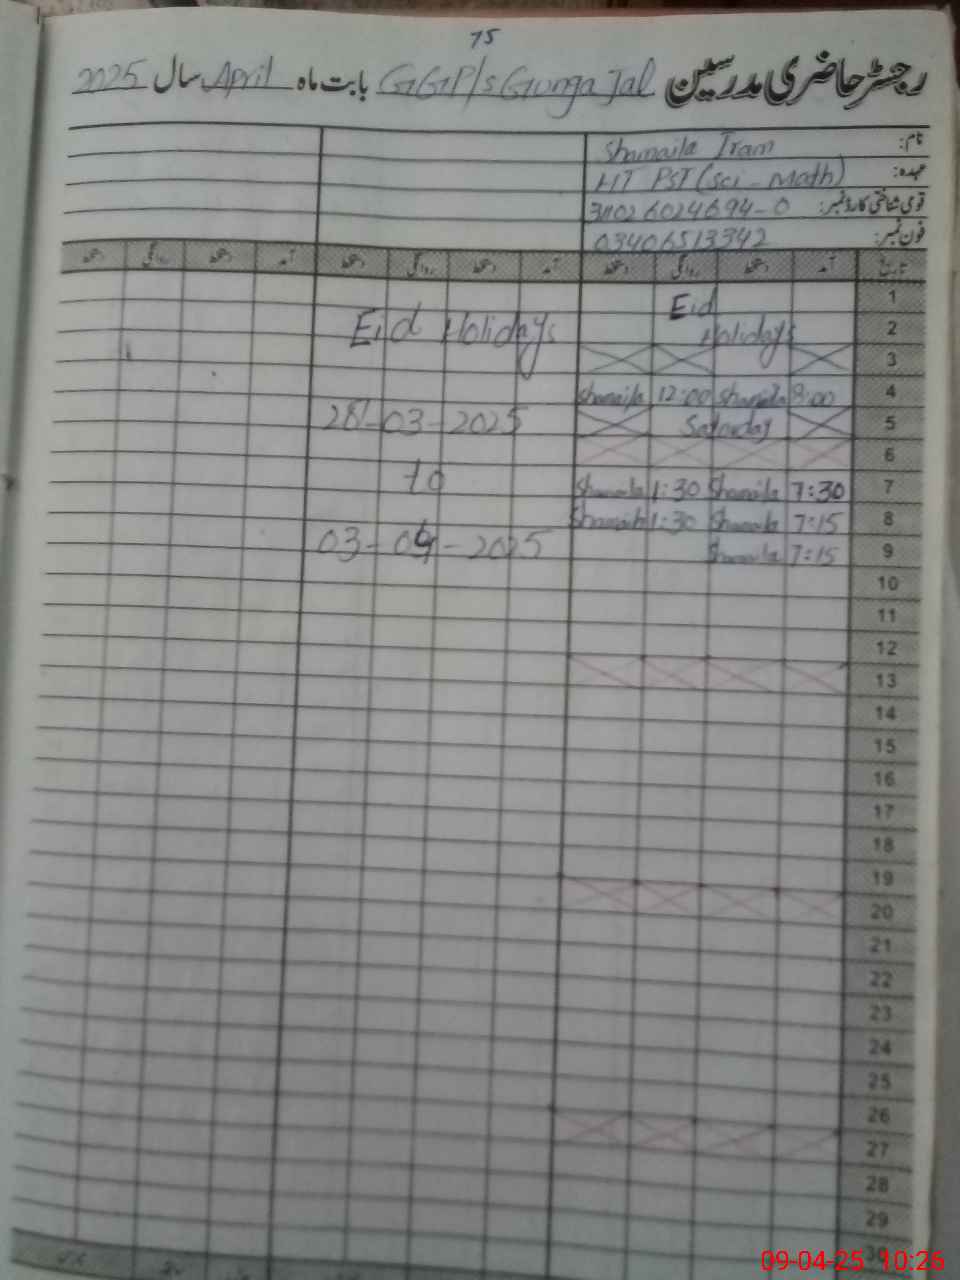 75
رجسٹر حاضری مدرسین GGP/s Gunga Jal بابت ماہ April سال 2025
نام: Shamaila Iram
عہدہ: HT PST (Sci - Math)
قومی شناختی کارڈ نمبر: 311026024694-0
فون نمبر: 03406513342
تاریخ آمد دستخط روانگی دستخط آمد دستخط روانگی دستخط آمد دستخط روانگی دستخط
1 Eid
2 Holidays Eid Holidays
3
4 8:00 Shamaila 12:00 Shamaila
5 Saturday 28-03-2025
6
7 7:30 Shamaila 1:30 Shamaila to
8 7:15 Shamaila 1:30 Shamaila
9 7:15 Shamaila 03-04-2025
10
11
12
13
14
15
16
17
18
19
20
21
22
23
24
25
26
27
28
29
30
09-04-25 10:26